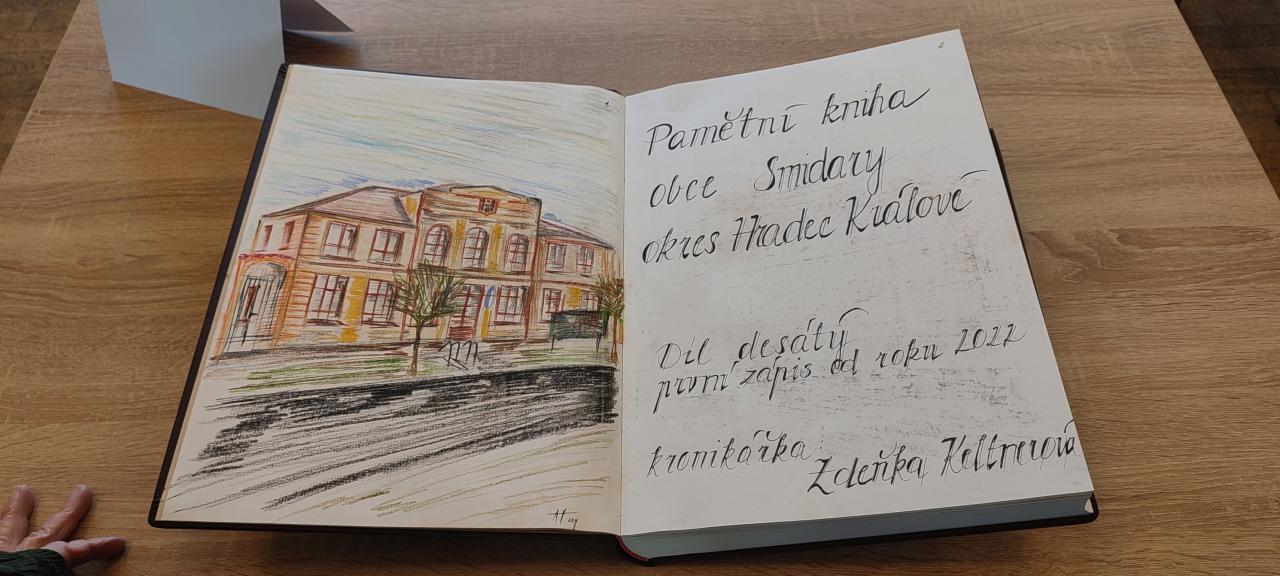 1.
2.
Pamětní kniha
obce Smidary
okres Hradec Králové
Díl desátý
první zápis od roku 2022
kronikářka:
Zdeňka Keltnerová